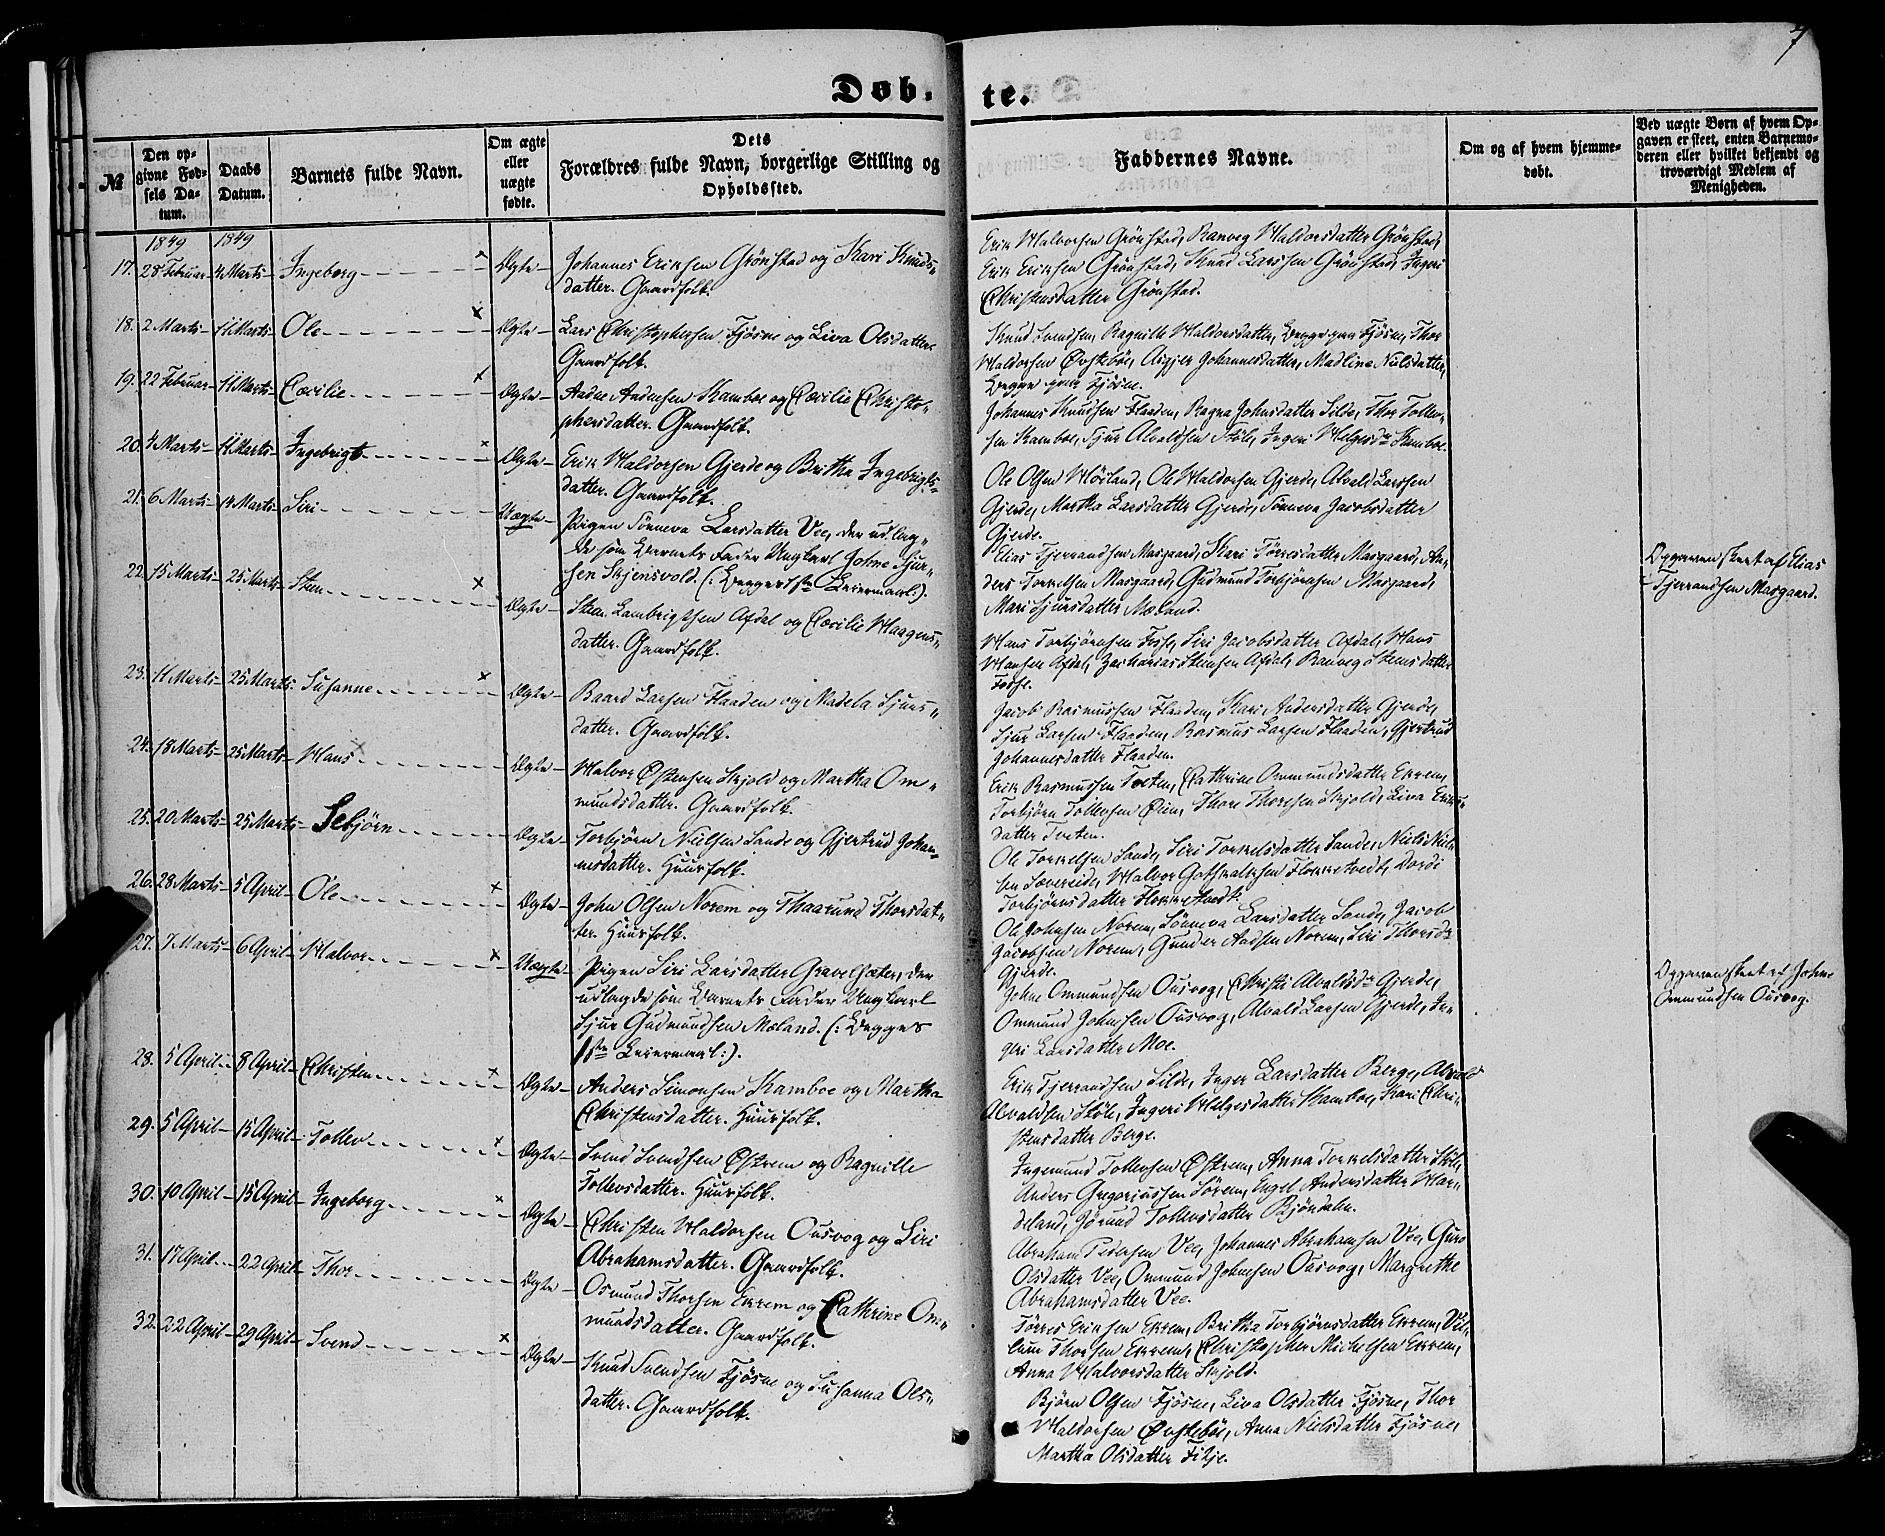 7
Døb- te.
№
Den op-
givne Fød-
sels Da-
tum.
Daabs
Datum.
Barnets fulde Navn.
Om ægte
eller
uægte
fødte.
Dets
Forældres fulde Navn, borgerlige Stilling og
Opholdssted.
Faddernes Navne.
Om og af hvem hjemme-
døbt.
Ved uægte Børn af hvem Op-
gaven er skeet, enten Barnemo-
deren eller hvilket bekjendt og
troværdigt Medlem af
Menigheden.
1849 1849
17. 28 Februar 4 Marts Ingeborg Ægte Johannes Eriksen Grönstad og Kari Knuds-
datter. Gaardfolk.
Erik Halvorsen Grönstad, Ranveg Haldorsdatter Grönstad,
Erik Eriksen Grönstad, Knud Larsen Grönstad, Ingeri
Christensdatter Grönstad.
18. 2 Marts 11 Marts Ole Ægte Lars Christophersen Fjøsne og Liva Olsdatter
Gaardfolk.
Knud Svendsen, Ragnille Haldorsdatter, begge paa Fjøsne, Thor
Haldorsen Øvstebøe, Asgjer Johannesdatter, Madline Nielsdatter,
begge paa Fjøsne.
19. 22 Februar 11 Marts Cæcilie Ægte Aadne Aadnesen Kamboe og Cæcilie Christo-
phersdatter. Gaardfolk.
Johannes Knudsen Flaaden, Ragna Johnsdatter Silde, Thor Tollev-
sen Kamboe, Sjur Alvaldsen Stöle, Ingeri Helgesdr Kamboe.
20. 4 Marts 11 Marts Ingebrigt Ægte Erik Haldorsen Gjerde og Britha Ingebrigts-
datter. Gaardfolk.
Ole Olsen Høiland, Ole Haldorsen Gjerde, Alvald Larsen
Gjerde, Martha Larsdatter Gjerde, Sønneva Jacobsdatter
Gjerde.
21. 6 Marts 14 Marts Siri Uægte Pigen Sönneva Larsdatter Vee, den udlag-
de som Barnets Fader Ungkarl Johne Sjur-
sen Skjensvold. (: Begges 1ste Leiermaal:).
Elias Tjerrandsen Masgaard, Kari Tørresdatter Masgaard, An-
ders Torkelsen Masgaard, Gudmund Torbjörnsen Masgaard,
Mari Sjursdatter Mæland.
Opgaven skeet af Elias
Tjerrandsen Masgaard.
22. 15 Marts 25 Marts Steen Ægte Steen Lambrigtsen Afdal og Cæcilie Haagens-
datter. Gaardfolk.
Hans Torbjörnsen Fosse, Siri Jacobsdatter Afdal, Hans
Hansen Afdal, Zacharias Stensen Afdal, Ranveg Stensdatter
Fosse.
23. 11 Marts 25 Marts Susanne Ægte Baard Larsen Flaaden og Madela Sjurs-
datter. Gaardfolk.
Jacob Rasmussen Flaaden, Kari Andersdatter Gjerde,
Sjur Larsen Flaaden, Rasmus Larsen Flaaden, Gjertrud
Johannesdatter Flaaden.
24. 18 Marts 25 Marts Hans Ægte Halvor Østensen Skjold og Martha Om-
mundsdatter. Gaardfolk.
Erik Rasmussen Tveten, Cathrine Ommundsdatter Ekrem,
Torbjörn Tollevsen Øien, Thore Thoresen Skjold, Liva Eriks-
datter Tveten.
25. 20 Marts 25 Marts Sebjörn Ægte Torbjörn Nielsen Sande og Gjertrud Johan-
nesdatter. Huusfolk.
Ole Torkelsen Sande, Siri Torkelsdatter Sande, Niels Niel-
sen Sævereide, Halvor Gotskalksen Flokketvedt, Dordi
Torbjörnsdatter Flokketvedt.
26. 28 Marts 5 April Ole Ægte John Olsen Norem og Thaarund Thorsdat-
ter. Huusfolk.
Ole Johnsen Norem, Sönneva Larsdatter Sande, Jacob
Jacobsen Norem, Gunder Aadsen Norem, Siri Thorsdr
Gjerde.
27. 7 Marts 6 April Halvor Uægte Pigen Siri Larsdatter Gravelsæter, den
udlagde som Barnets Fader Ungkarl
Sjur Gudmundsen Mæland. (: Begges
1ste Leiermaal:).
Johne Ommundsen Ousvog, Christi Alvaldsdr Gjerde,
Ommund Johnesen Ousvog, Alvald Larsen Gjerde, In-
geri Larsdatter Moe.
Opgaven skeet af Johne
Ommundsen Ousvog.
28. 5 April 8 April Christen Ægte Anders Simonsen Kamboe og Martha
Christensdatter. Huusfolk.
Erik Tjerrandsen Silde, Inger Larsdatter Berge, Alvald
Alvaldsen Stöle, Ingeri Helgesdatter Kamboe, Kari Chri-
stensdatter Berge.
29. 5 April 15 April Tollev Ægte Svend Svendsen Østrem og Ragnille
Tollevsdatter. Huusfolk.
Ingemund Tollevsen Østrem, Anna Torkelsdatter Stöle,
Anders Gregoriussen Sörem, Engel Andersdatter Har-
deland, Jörund Tollevsdatter Bjöndalen.
30. 10 April 15 April Ingeborg Ægte Christen Haldorsen Ousvog og Siri
Abrahamsdatter. Gaardfolk.
Abraham Pedersen Vee, Johannes Abrahamsen Vee, Guro
Olsdatter Vee, Ommund Johnesen Ousvog, Margrethe
Abrahamsdatter Vee.
31. 17 April 22 April Thor Ægte Osmund Thorsen Ekrem og Cathrine Om-
mundsdatter. Gaardfolk.
Törres Eriksen Ekrem, Britha Torbjörnsdatter Ekrem, Vil-
lum Thorsen Ekrem, Christopher Michelsen Ekrem,
Anna Halvorsdatter Skjold.
32. 22 April 29 April Svend Ægte Knud Svendsen Fjøsne og Susanna Ols-
datter. Gaardfolk.
Björn Olsen Fjøsne, Liva Olsdatter Fjøsne, Thor
Haldorsen Øvstebøe, Anna Nielsdatter Fjøsne,
Martha Olsdatter Filje.